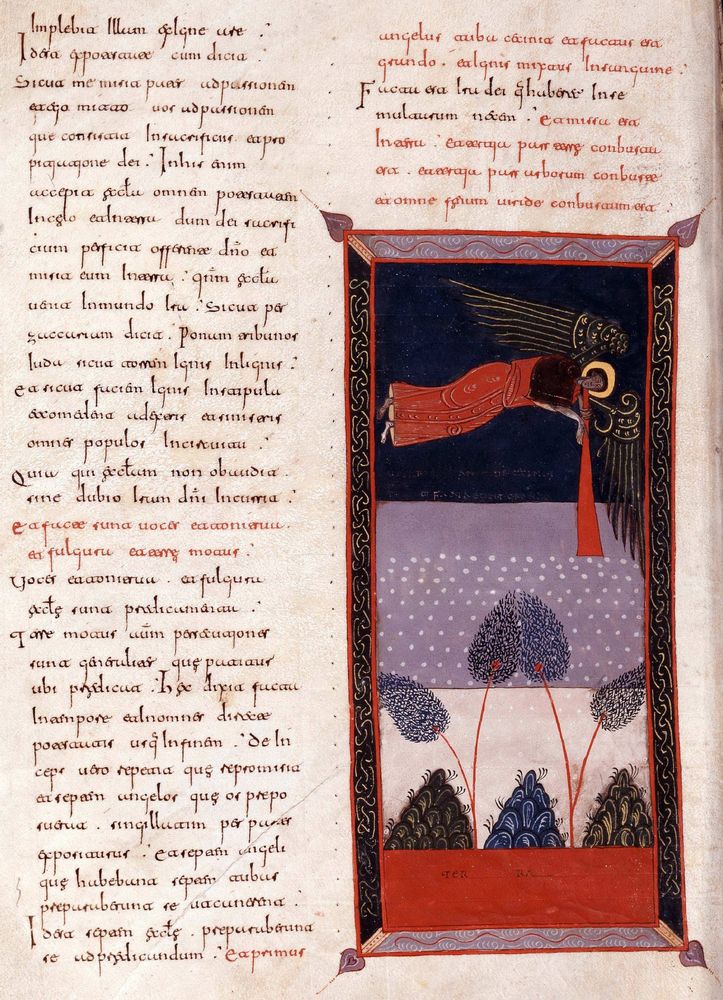 Implebit illum ex igne are .
Idest ex potestate cum dicit .
Sicut me misit pater ad passionem
et ego mitto vos ad passionem
que consistit In sacrificiis et pro
pitiatione dei . In his enim
accepit eclꞩa omnem potestatem
In celo et In terra dum dei sacrifi
cium perficit offerente dno et
misit eum In terra . qum eclꞩa
venit In mundo Ira . Sicut per
zaccarium dicit . Ponam tribunos
Iuda sicut torrem Ignis In lignis .
Et sicut faciem Ignis In stipula
et comedent a dextris et sinistris
omnes populos In circuitu .
Quia qui eclꞩam non obaudit .
sine dubio Iram dni Incurrit .
Et facte sunt voces et tonitrua .
et fulgura et terre motus .
Voces et tonitrua . et fulgura
ecle sunt predicantium .
Terre motus persecutiones
sunt que
ubi predicat . Hec dixit futura
In tempore et In omnes
potestatis usq In finem . De In
ceps vero repetit que repromisit
et septem angelos prepo
suerat . singillatim per partes
expositurus . Et septem angeli
que habebant septem tubas
preparaberunt se ut canerent .
Idest septem ecle . preparaberunt
se ad predicandum . Et primus
angelus tuba cecinit et facta est
grando . et ignis mixtus In sanguine .
Facta est Ira dei q haberet In se
multarum necem . Et missa est
In terra . et tertia pars terre conbusta
est . et tertia pars arborum conbuste
et omne fenum viride conbustum est .
TER RA